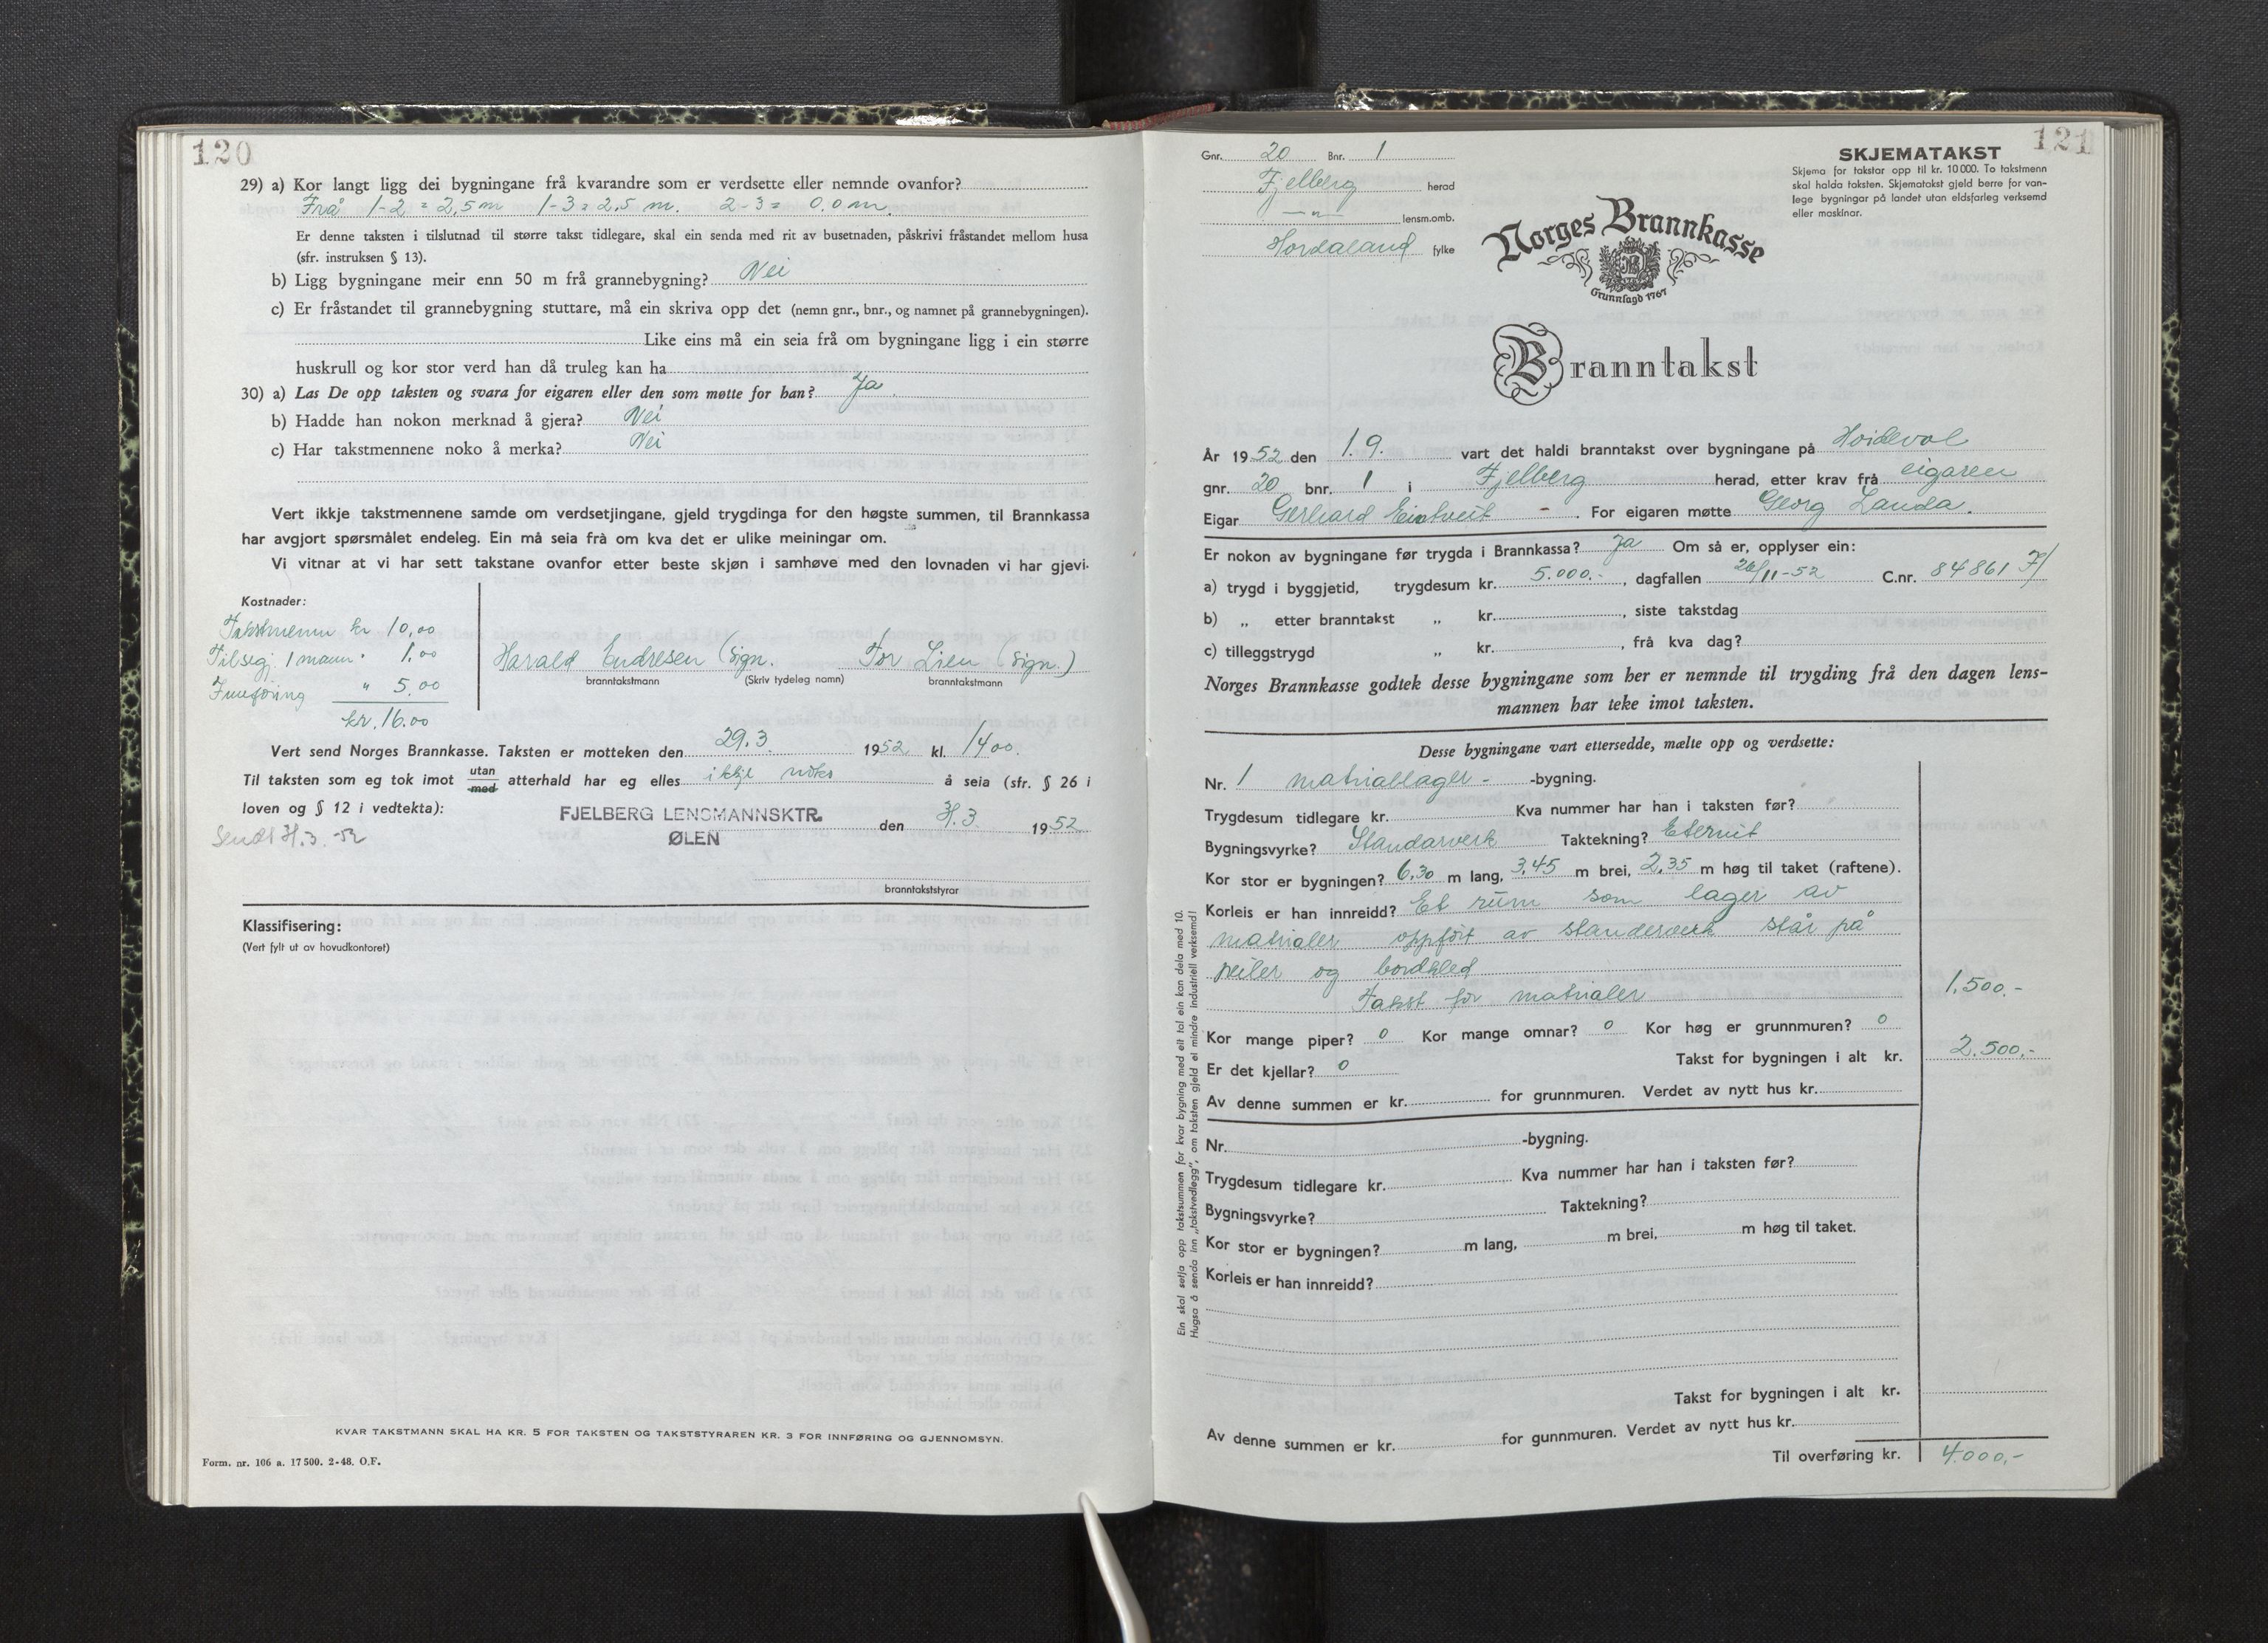 120
29) a) Kor langt ligg dei bygningane frå kvarandre som er verdsette eller nemnde ovanfor?
Frå 1-2 = 2,5 m 1-3 = 2,5 m. 2-3 = 0.0 m.
Er denne taksten i tilslutnad til større takst tidlegare, skal ein senda med rit av busetnaden, påskrivi fråstandet mellom husa
(sfr. instruksen § 13).
b) Ligg bygningane meir enn 50 m frå grannebygning? Nei
c) Er fråstandet til grannebygning stuttare, må ein skriva opp det (nemn gnr., bnr., og namnet på grannebygningen).
Like eins må ein seia frå om bygningane ligg i ein større
huskrull og kor stor verd han då truleg kan ha
30) a) Las De opp taksten og svara for eigaren eller den som møtte for han? Ja
b) Hadde han nokon merknad å gjera? Nei
c) Har takstmennene noko å merka? Nei
Vert ikkje takstmennene samde om verdsetjingane, gjeld trygdinga for den høgste summen, til Brannkassa
har avgjort spørsmålet endeleg. Ein må seia frå om kva det er ulike meiningar om.
Vi vitnar at vi har sett takstane ovanfor etter beste skjøn i samhøve med den lovnaden vi har gjevi.
Kostnader:
Takstmenn kr 10,00
Tilsegj. 1 mann " 1,00
Innføring " 5,00
kr. 16.00
Harald Endresen (sign. Tor Lien (sign.)
branntakstmann (Skriv tydeleg namn) branntakstmann
Vert send Norges Brannkasse. Taksten er motteken den 29.3. 1952 kl. 14 00.
Til taksten som eg tok imot utan/med atterhald har eg elles ikkje noko å seia (sfr. § 26 i
loven og § 12 i vedtekta):
FJELBERG LENSMANNSKTR.
ØLEN
den 31.3. 1952
Sendt 31.3.-52
branntakststyrar
Klassifisering:
(Vert fylt ut av hovudkontoret)
KVAR TAKSTMANN SKAL HA KR. 5 FOR TAKSTEN OG TAKSTSTYRAREN KR. 3 FOR INNFØRING OG GJENNOMSYN.
Form. nr. 106 a. 17 500. 2-48. O.F.
121
Gnr. 20 Bnr. 1
Fjelberg herad
—"— lensm.omb.
Hordaland fylke
SKJEMATAKST
Skjema for takstar opp til kr. 10 000. To takstmenn
skal halda taksten. Skjematakst gjeld berre for van-
lege bygningar på landet utan eldsfarleg verksemd
eller maskinar.
Norges Brannkasse
Grunnlagd 1767
Branntakst
År 1952 den 1.9. vart det haldi branntakst over bygningane på Hoidevol
gnr. 20 bnr. 1 i Fjelberg herad, etter krav frå eigaren
Eigar Gerhard Eintveit - For eigaren møtte Georg Landa.
Er nokon av bygningane før trygda i Brannkassa? Ja Om så er, opplyser ein:
a) trygd i byggjetid, trygdesum kr. 5.000.-, dagfallen 26/11-52 C.nr. 84861 F/
b) „ etter branntakst „ kr. , siste takstdag
c) tilleggstrygd „ kr. , frå kva dag?
Norges Brannkasse godtek desse bygningane som her er nemnde til trygding frå den dagen lens-
mannen har teke imot taksten.
Desse bygningane vart ettersedde, mælte opp og verdsette:
Nr. 1 matriallager - -bygning.
Trygdesum tidlegare kr. Kva nummer har han i taksten før?
Bygningsvyrke? Standarverk Taktekning? Eternit
Kor stor er bygningen? 6,30 m lang, 3,45 m brei, 2,35 m høg til taket (raftene).
Korleis er han innreidd? Et rum som lager av
matrialer oppført av standerverk står på
peiler og bordkled
Takst for matrialer 1.500.-
Kor mange piper? 0 Kor mange omnar? 0 Kor høg er grunnmuren? 0
Er det kjellar? 0 Takst for bygningen i alt kr. 2.500.-
Av denne summen er kr. for grunnmuren. Verdet av nytt hus kr.
Nr. -bygning.
Trygdesum tidlegare kr. Kva nummer har han i taksten før?
Bygningsvyrke? Taktekning?
Kor stor er bygningen? m lang, m brei, m høg til taket.
Korleis er han innreidd?
Takst for bygningen i alt kr.
Av denne summen er kr. for gunnmuren. Verdet av nytt hus kr.
Til overføring kr. 4.000,-
Ein skal setja opp takstsummen for kvar bygning med eit tal ein kan dela med 10.
Hugsa å senda inn „takstvedlegg", om taksten gjeld ei mindre industriell verksemd!